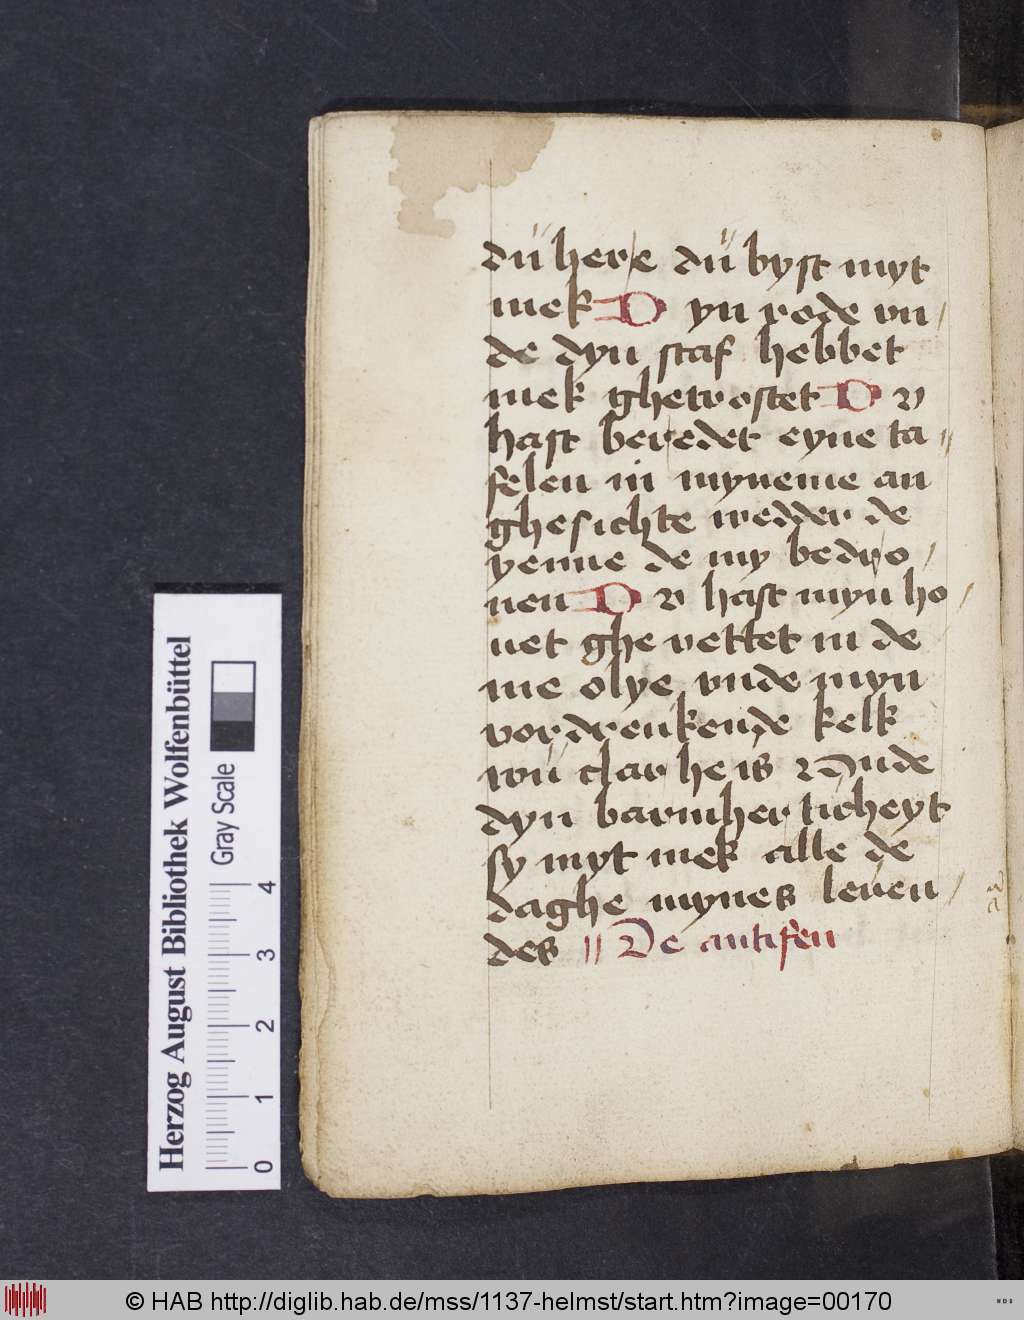 dü here dü byst myt
mek Dyn rode vn/
de dyn staf hebbet
mek ghetrostet Dv
hast beredet eyne ta//
felen in myneme an
ghesichte wedder de
yenne de my bedro/
nen Dv hast myn ho/
uet ghe vettet in de
me olye vnde myn
vordrenkende kelk
wü clar he is Vnde
dyn barmherticheyt
sy myt mek alle de
daghe mynes leuen/
des // De antifen
Herzog August Bibliothek Wolfenbüttel
Gray Scale
0 1 2 3 4
© HAB http://diglib.hab.de/mss/1137-helmst/start.htm?image=00170